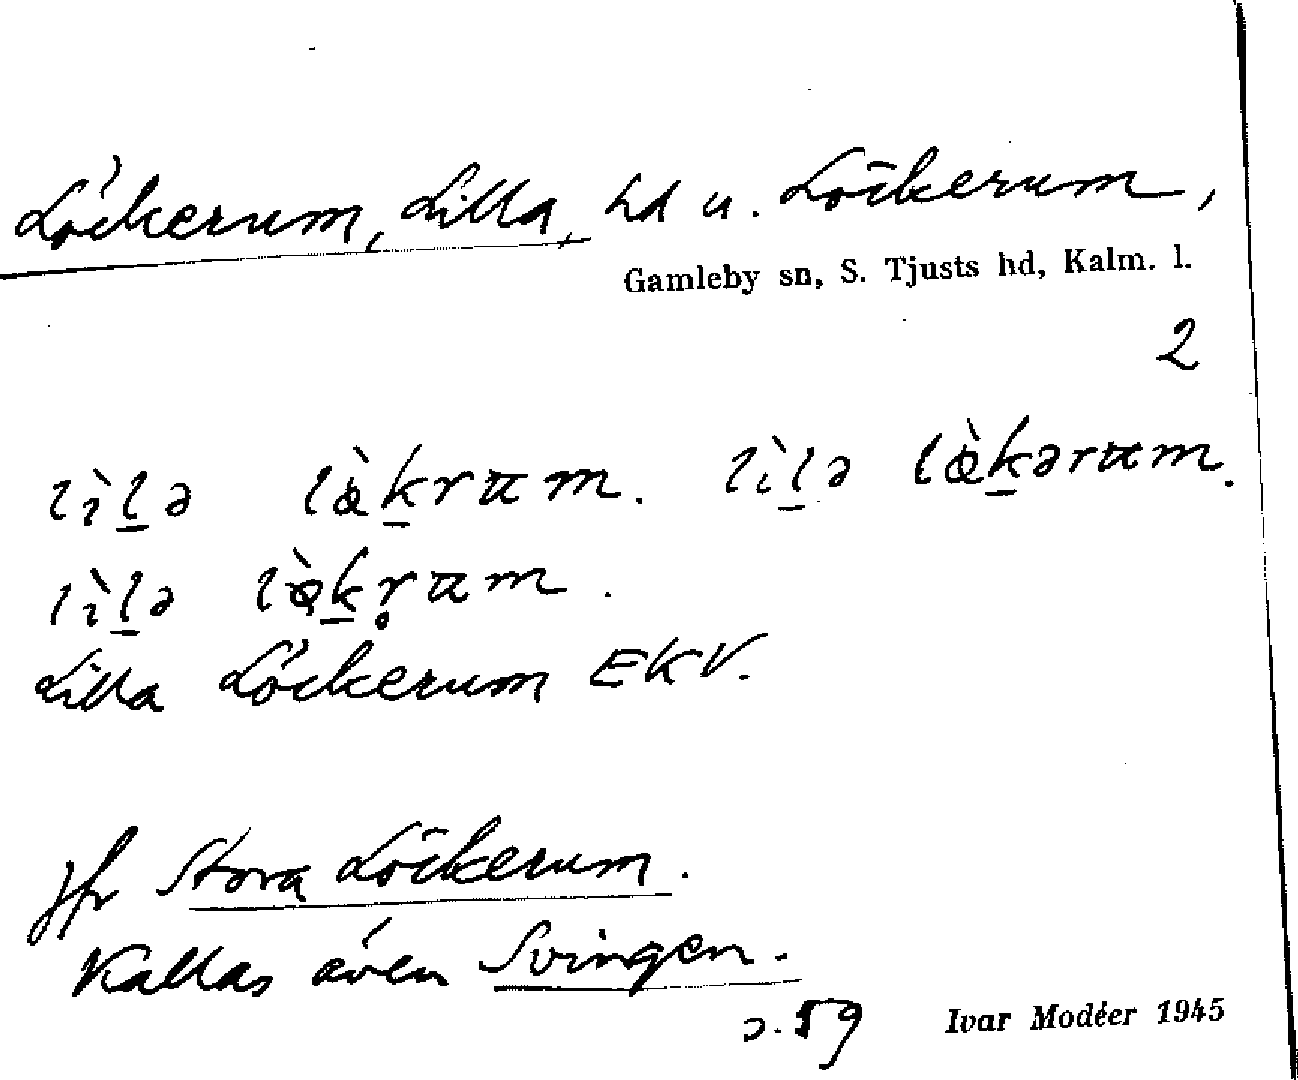 Löckerum, Lilla, hd u. Löckerum,
Gamleby sn, S. Tjusts hd, Kalm. l.
2
lìl̠ə lœ̀k̠rum. lìl̠ə lœ̀k̠ərum.
lìl̠ə lœ̀k̠r̥um.
Lilla Löckerum EKV.
jfr Stora Löckerum.
Kallas även Svingen.
s. 59
Ivar Modéer 1945